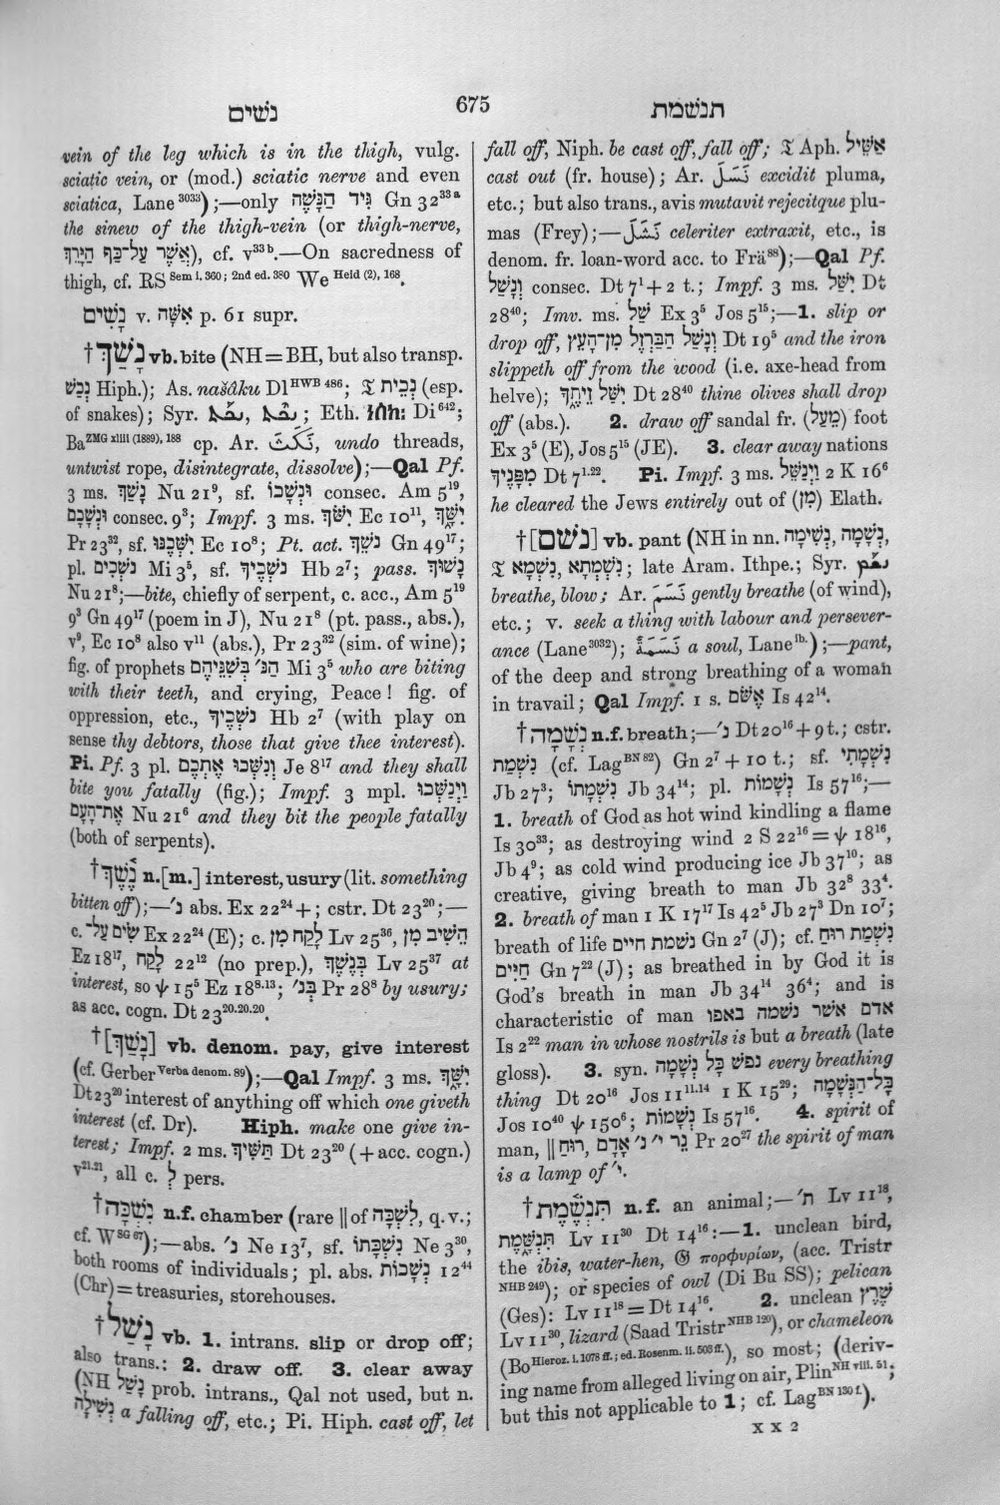 נשׁים
675
תנשׁמת
vein of the leg which is in the thigh, vulg.
sciatic vein, or (mod.) sciatic nerve and even
sciatica, Lane 3033);—only גִּיד הַנָּשֶׁה Gn 32 33a
the sinew of the thigh-vein (or thigh-nerve,
אֲשֶׁר עַל־כַּף הַיָּרֵךְ), cf. v 33b.—On sacredness of
thigh, cf. RS Sem i. 360; 2nd ed. 380 We Heid (2), 168.
נָשִׁים v. אִשָּׁה p. 61 supr.
† נָשַׁךְ vb. bite (NH = BH, but also transp.
נכשׁ Hiph.); As. našâku Dl HWB 486; 𝔗 נְכֵית (esp.
of snakes); Syr. Eth. Di 642;
Ba ZMG xliii (1889), 188 cp. Ar. نَكَثَ, undo threads,
untwist rope, disintegrate, dissolve);—Qal Pf.
3 ms. נָשַׁךְ Nu 21 9, sf. וּנְשָׁכוֹ consec. Am 5 19,
וּנְשָׁכָם consec. 9 3; Impf. 3 ms. יִשֹּׁךְ Ec 10 11, יִשָּׁךְ
Pr 23 32, sf. יִשְּׁכֶנּוּ Ec 10 8; Pt. act. נֹשֵׁךְ Gn 49 17;
pl. נֹשְׁכִים Mi 3 5, sf. נֹשְׁכֶיךָ Hb 2 7; pass. נָשׁוּךְ
Nu 21 8;—bite, chiefly of serpent, c. acc., Am 5 19
9 3 Gn 49 17 (poem in J), Nu 21 8 (pt. pass., abs.),
v 9, Ec 10 8 also v 11 (abs.), Pr 23 32 (sim. of wine);
fig. of prophets הַנּ׳ בְּשִׁנֵּיהֶם Mi 3 5 who are biting
with their teeth, and crying, Peace! fig. of
oppression, etc., נֹשְׁכֶיךָ Hb 2 7 (with play on
sense thy debtors, those that give thee interest).
Pi. Pf. 3 pl. וְנִשְּׁכוּ אֶתְכֶם Je 8 17 and they shall
bite you fatally (fig.); Impf. 3 mpl. וַיְנַשְּׁכוּ
אֶת־הָעָם Nu 21 6 and they bit the people fatally
(both of serpents).
† נֶשֶׁךְ n.[m.] interest, usury (lit. something
bitten off);—נ׳ abs. Ex 22 24 +; cstr. Dt 23 20;—
c. שִׂים עַל־ Ex 22 24 (E); c. לָקַח מִן Lv 25 36, הֵשִׁיב מִן
Ez 18 17, לָקַח 22 12 (no prep.), בְּנֶשֶׁךְ Lv 25 37 at
interest, so ψ 15 5 Ez 18 8.13; בְּנ׳ Pr 28 8 by usury;
as acc. cogn. Dt 23 20.20.20.
† [נָשַׁךְ] vb. denom. pay, give interest
(cf. Gerber Verba denom. 89);—Qal Impf. 3 ms. יִשָּׁךְ
Dt 23 20 interest of anything off which one giveth
interest (cf. Dr). Hiph. make one give in-
terest; Impf. 2 ms. תַּשִּׁיךְ Dt 23 20 (+ acc. cogn.)
v 21.21, all c. לְ pers.
† נִשְׁכָּה n.f. chamber (rare ‖ of לִשְׁכָּה, q.v.;
cf. W SG 67);—abs. נ׳ Ne 13 7, sf. נִשְׁכָּתוֹ Ne 3 30,
both rooms of individuals; pl. abs. נְשָׁכוֹת 12 44
(Chr) = treasuries, storehouses.
† נָשַׁל vb. 1. intrans. slip or drop off;
also trans.: 2. draw off. 3. clear away
(NH נָשַׁל prob. intrans., Qal not used, but n.
נְשִׁילָה a falling off, etc.; Pi. Hiph. cast off, let
fall off, Niph. be cast off, fall off; 𝔗 Aph. אַשֵּׁיל
cast out (fr. house); Ar. نَسَلَ excidit pluma,
etc.; but also trans., avis mutavit rejecitque plu-
mas (Frey);—نَشَلَ celeriter extraxit, etc., is
denom. fr. loan-word acc. to Frä 88);—Qal Pf.
וְנָשַׁל consec. Dt 7 1 + 2 t.; Impf. 3 ms. יִשַּׁל Dt
28 40; Imv. ms. שַׁל Ex 3 5 Jos 5 15;—1. slip or
drop off, וְנָשַׁל הַבַּרְזֶל מִן־הָעֵץ Dt 19 5 and the iron
slippeth off from the wood (i.e. axe-head from
helve); יִשַּׁל זֵיתֶךָ Dt 28 40 thine olives shall drop
off (abs.). 2. draw off sandal fr. (מֵעַל) foot
Ex 3 5 (E), Jos 5 15 (JE). 3. clear away nations
מִפָּנֶיךָ Dt 7 1.22. Pi. Impf. 3 ms. וַיְנַשֵּׁל 2 K 16 6
he cleared the Jews entirely out of (מִן) Elath.
† [נשׁם] vb. pant (NH in nn. נְשָׁמָה, נְשִׁימָה,
𝔗 נִשְׁמְתָא, נִשְׁמָא; late Aram. Ithpe.; Syr.
breathe, blow; Ar. نَسَمَ gently breathe (of wind),
etc.; v. seek a thing with labour and persever-
ance (Lane 3032); نَسَمَةٌ a soul, Lane ib.);—pant,
of the deep and strong breathing of a woman
in travail; Qal Impf. 1 s. אֶשֹּׁם Is 42 14.
† נְשָׁמָה n.f. breath;—נ׳ Dt 20 16 + 9 t.; cstr.
נִשְׁמַת (cf. Lag BN 82) Gn 2 7 + 10 t.; sf. נִשְׁמָתִי
Jb 27 3; נִשְׁמָתוֹ Jb 34 14; pl. נְשָׁמוֹת Is 57 16;—
1. breath of God as hot wind kindling a flame
Is 30 33; as destroying wind 2 S 22 16 = ψ 18 16,
Jb 4 9; as cold wind producing ice Jb 37 10; as
creative, giving breath to man Jb 32 8 33 4.
2. breath of man 1 K 17 17 Is 42 5 Jb 27 3 Dn 10 7;
breath of life נשׁמת חיים Gn 2 7 (J); cf. נִשְׁמַת רוּחַ
חַיִּים Gn 7 22 (J); as breathed in by God it is
God's breath in man Jb 34 14 36 4; and is
characteristic of man אדם אשׁר נשׁמה באפו
Is 2 22 man in whose nostrils is but a breath (late
gloss). 3. syn. נפשׁ כָּל נְשָׁמָה every breathing
thing Dt 20 16 Jos 11 11.14 1 K 15 29; כָּל־הַנְּשָׁמָה
Jos 10 40 ψ 150 6; נְשָׁמוֹת Is 57 16. 4. spirit of
man, ‖ רוּחַ, נֵר י׳ נ׳ אָדָם Pr 20 27 the spirit of man
is a lamp of י׳.
† תִּנְשֶׁמֶת n.f. an animal;—ת׳ Lv 11 18,
תִּנְשָׁמֶת Lv 11 30 Dt 14 16:—1. unclean bird,
the ibis, water-hen, 𝔊 πορφυρίων, (acc. Tristr
NHB 249); or species of owl (Di Bu SS); pelican
(Ges): Lv 11 18 = Dt 14 16. 2. unclean שֶׁרֶץ
Lv 11 30, lizard (Saad Tristr NHB 120), or chameleon
(Bo Hieroz. i. 1078 ff.; ed. Rosenm. ii. 503 ff.), so most; (deriv-
ing name from alleged living on air, Plin NH viii. 51;
but this not applicable to 1; cf. Lag BN 130 f.).
X X 2